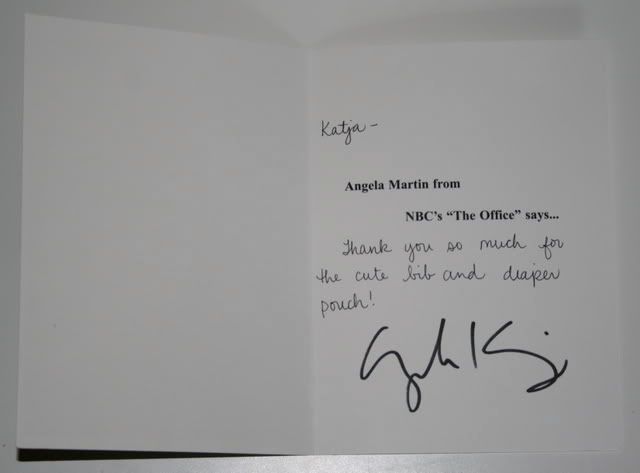 Katja -
Angela Martin from
NBC's "The Office" says...
Thank you so much for
the cute bib and diaper
pouch!
Angela K